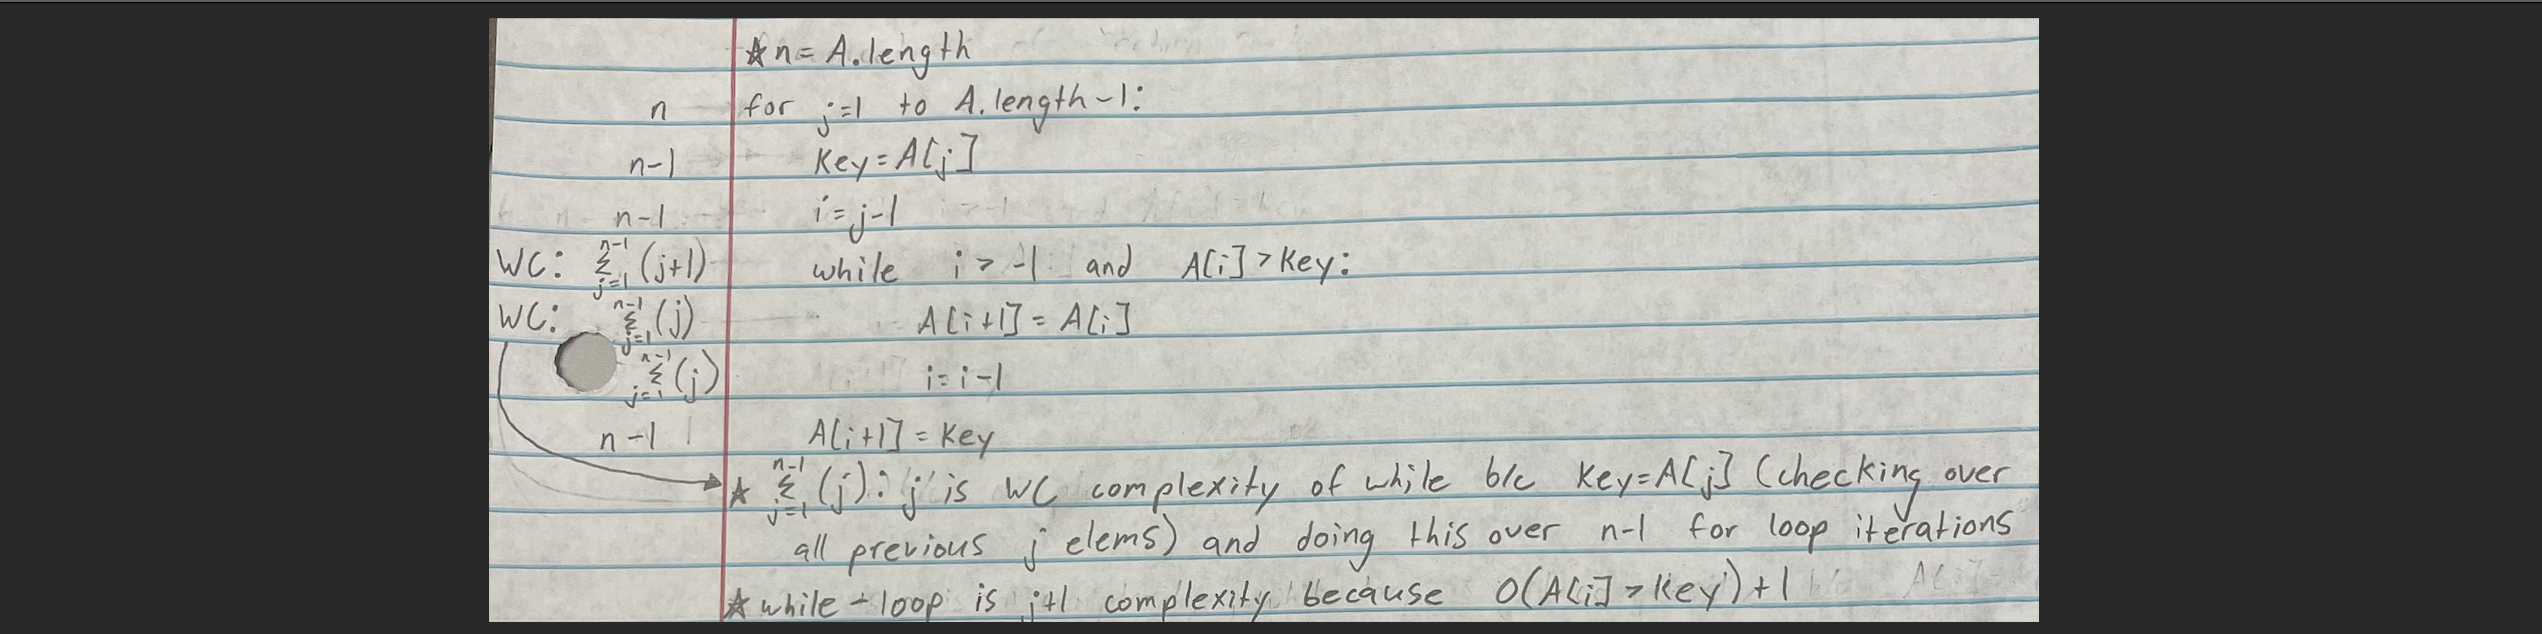 ☆ n = A.length
n for j=1 to A.length-1:
n-1 Key = A[j]
n-1 i = j-1
WC: n-1 Σ j=1 (j+1) while i > -1 and A[i] > Key:
WC: n-1 Σ j=1 (j) A[i+1] = A[i]
n-1 Σ j=1 (j) i = i-1
n-1 A[i+1] = Key
☆ n-1 Σ j=1 (j): j is WC complexity of while b/c Key=A[j] (checking over
all previous j elems) and doing this over n-1 for loop iterations
☆ while-loop is j+1 complexity because O(A[i] > Key) + 1